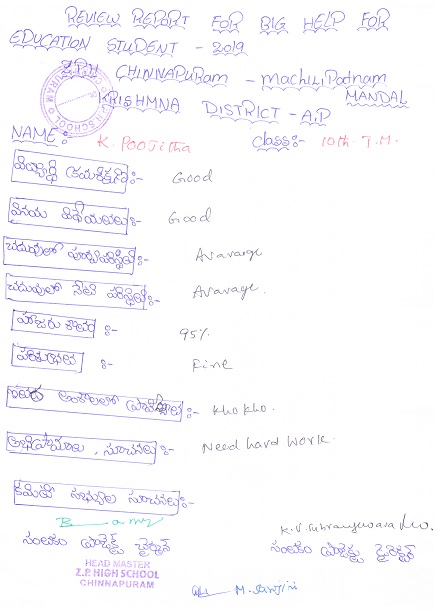 REVIEW REPORT FOR BIG HELP FOR
EDUCATION STUDENT - 2019
Z.P.H CHINNAPURam - machilipatnam
MANDAL
KRISHMNA DISTRICT - A.P
NAME: K. POOJitha Class:- 10th T.M.
విద్యార్థి క్రమశిక్షణ:- Good
వినయ విధేయతలు:- Good
చదువులో పూర్వపరిస్థితి:- Avarage
చదువులో నేటి పరిస్థితి:- Avarage.
హాజరు శాతం:- 95%
పరిశుభ్రత :- Fine
ఇతర అంశాలలో ప్రావీణ్యత:- Kho Kho.
అభిప్రాయాలు, సూచనలు:- Need hard work.
కమిటీ సభ్యుల సూచనలు:-
సంతకం ప్రాజెక్ట్ చైర్మన్
సంతకం ప్రాజెక్టు డైరెక్టర్
HEAD MASTER
Z.P. HIGH SCHOOL
CHINNAPURAM